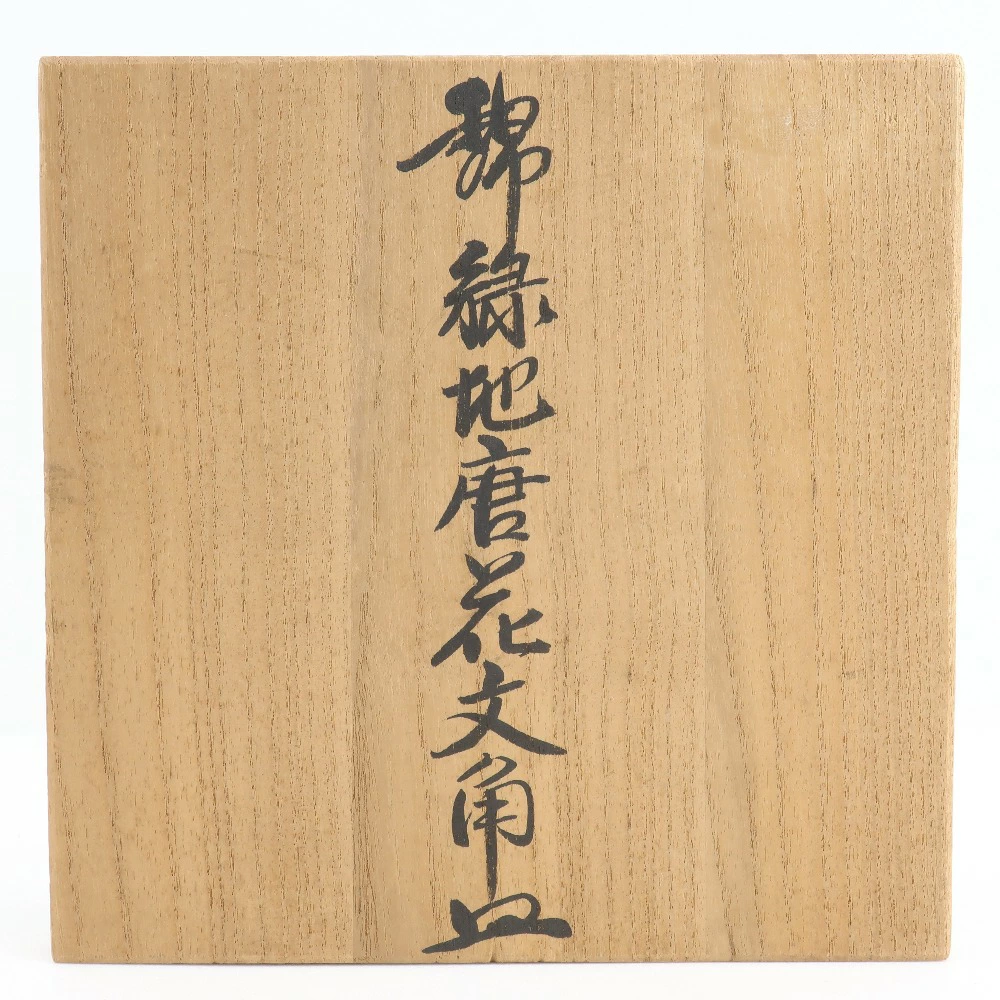 錦緑地唐花文角皿